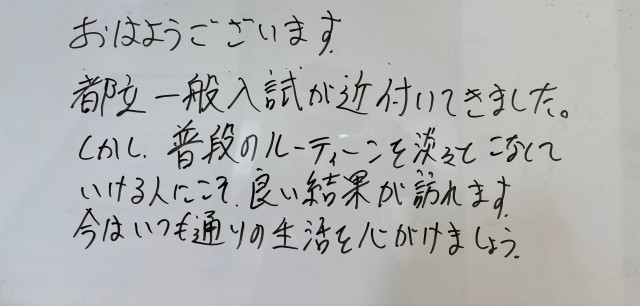 おはようございます.
都立一般入試が近付いてきました。
しかし、普段のルーティーンを淡々とこなして
いける人にこそ、良い結果が訪れます.
今はいつも通りの生活を心がけましょう.